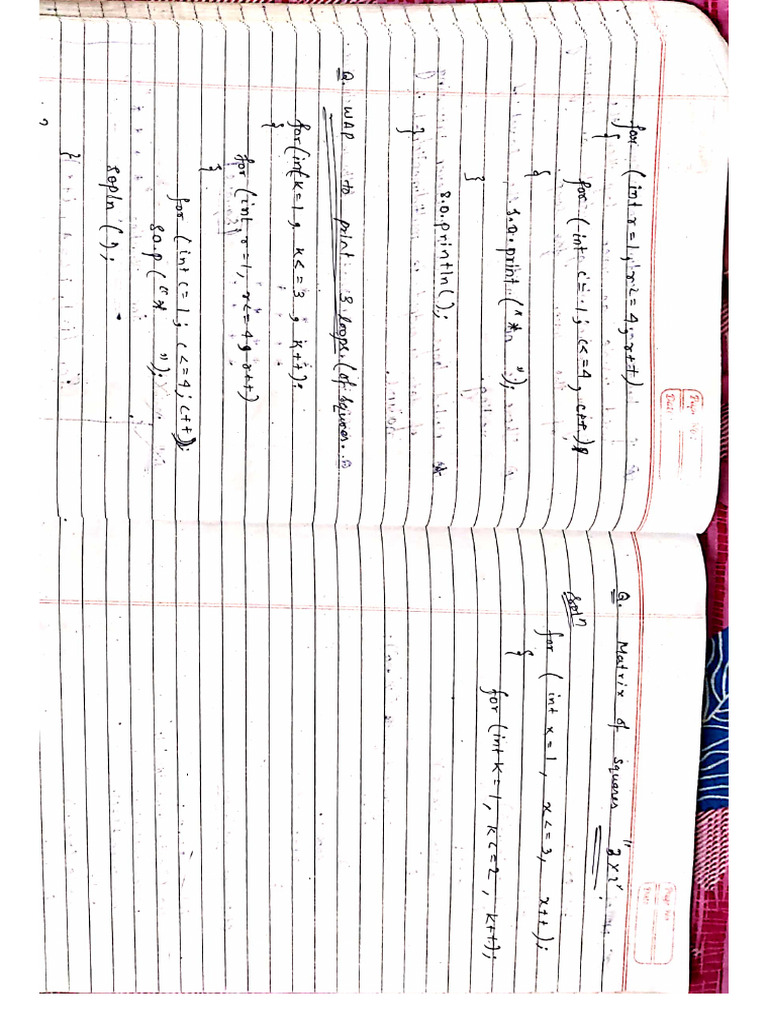 for (int r=1; r<=4; r++)
{
for (int c=1; c<=4; c++)
{
s.o.print ("* ");
}
s.o.println();
}
Q. WAP to print 3 loops (of squares.
for(int k=1, k<=3, k++);
{
for (int r=1, r<=4, r++)
{
for (int c=1; c<=4; c++);
so.p("* ");
sopln ();
}
Q. Matrix of squares "3x2".
soln
for ( int x=1, x<=3, x++);
{
for (int k=1, k<=2, k++);